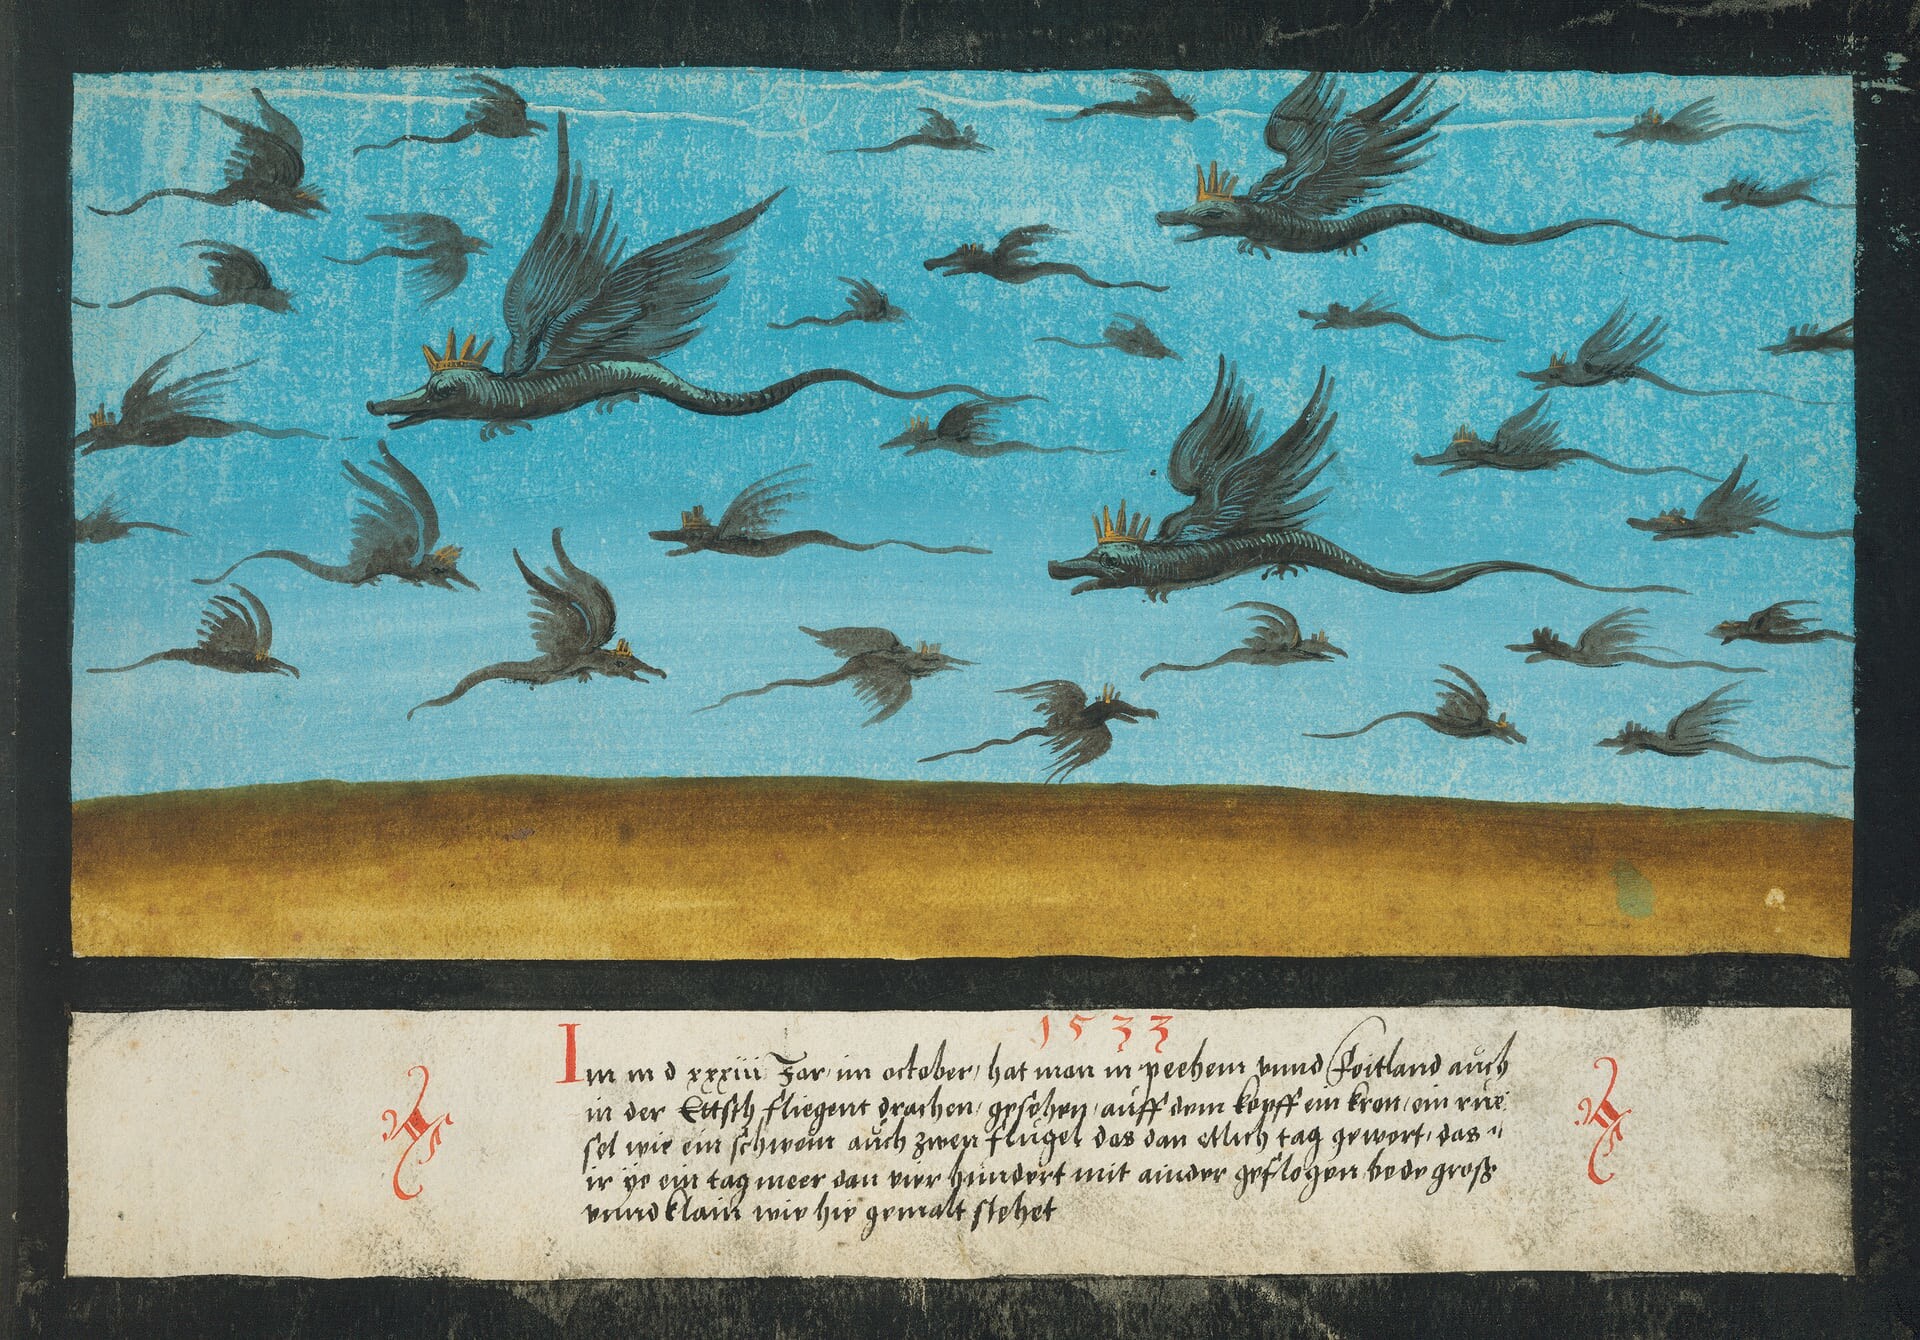 1533
Im m d xxxiii Jar, im october, hat man in peehem vnnd Foitland auch
in der Ettsch fliegent drachen, gesehen, auff dem kopff ein kron, ein rue
sel wie ein schwein auch zwen flugel das dan etlich tag gewert, das
ir ye ein tag meer dan vier hundert mit ainder geflogen bede groß
vnnd klain wie hie gemalt stehet